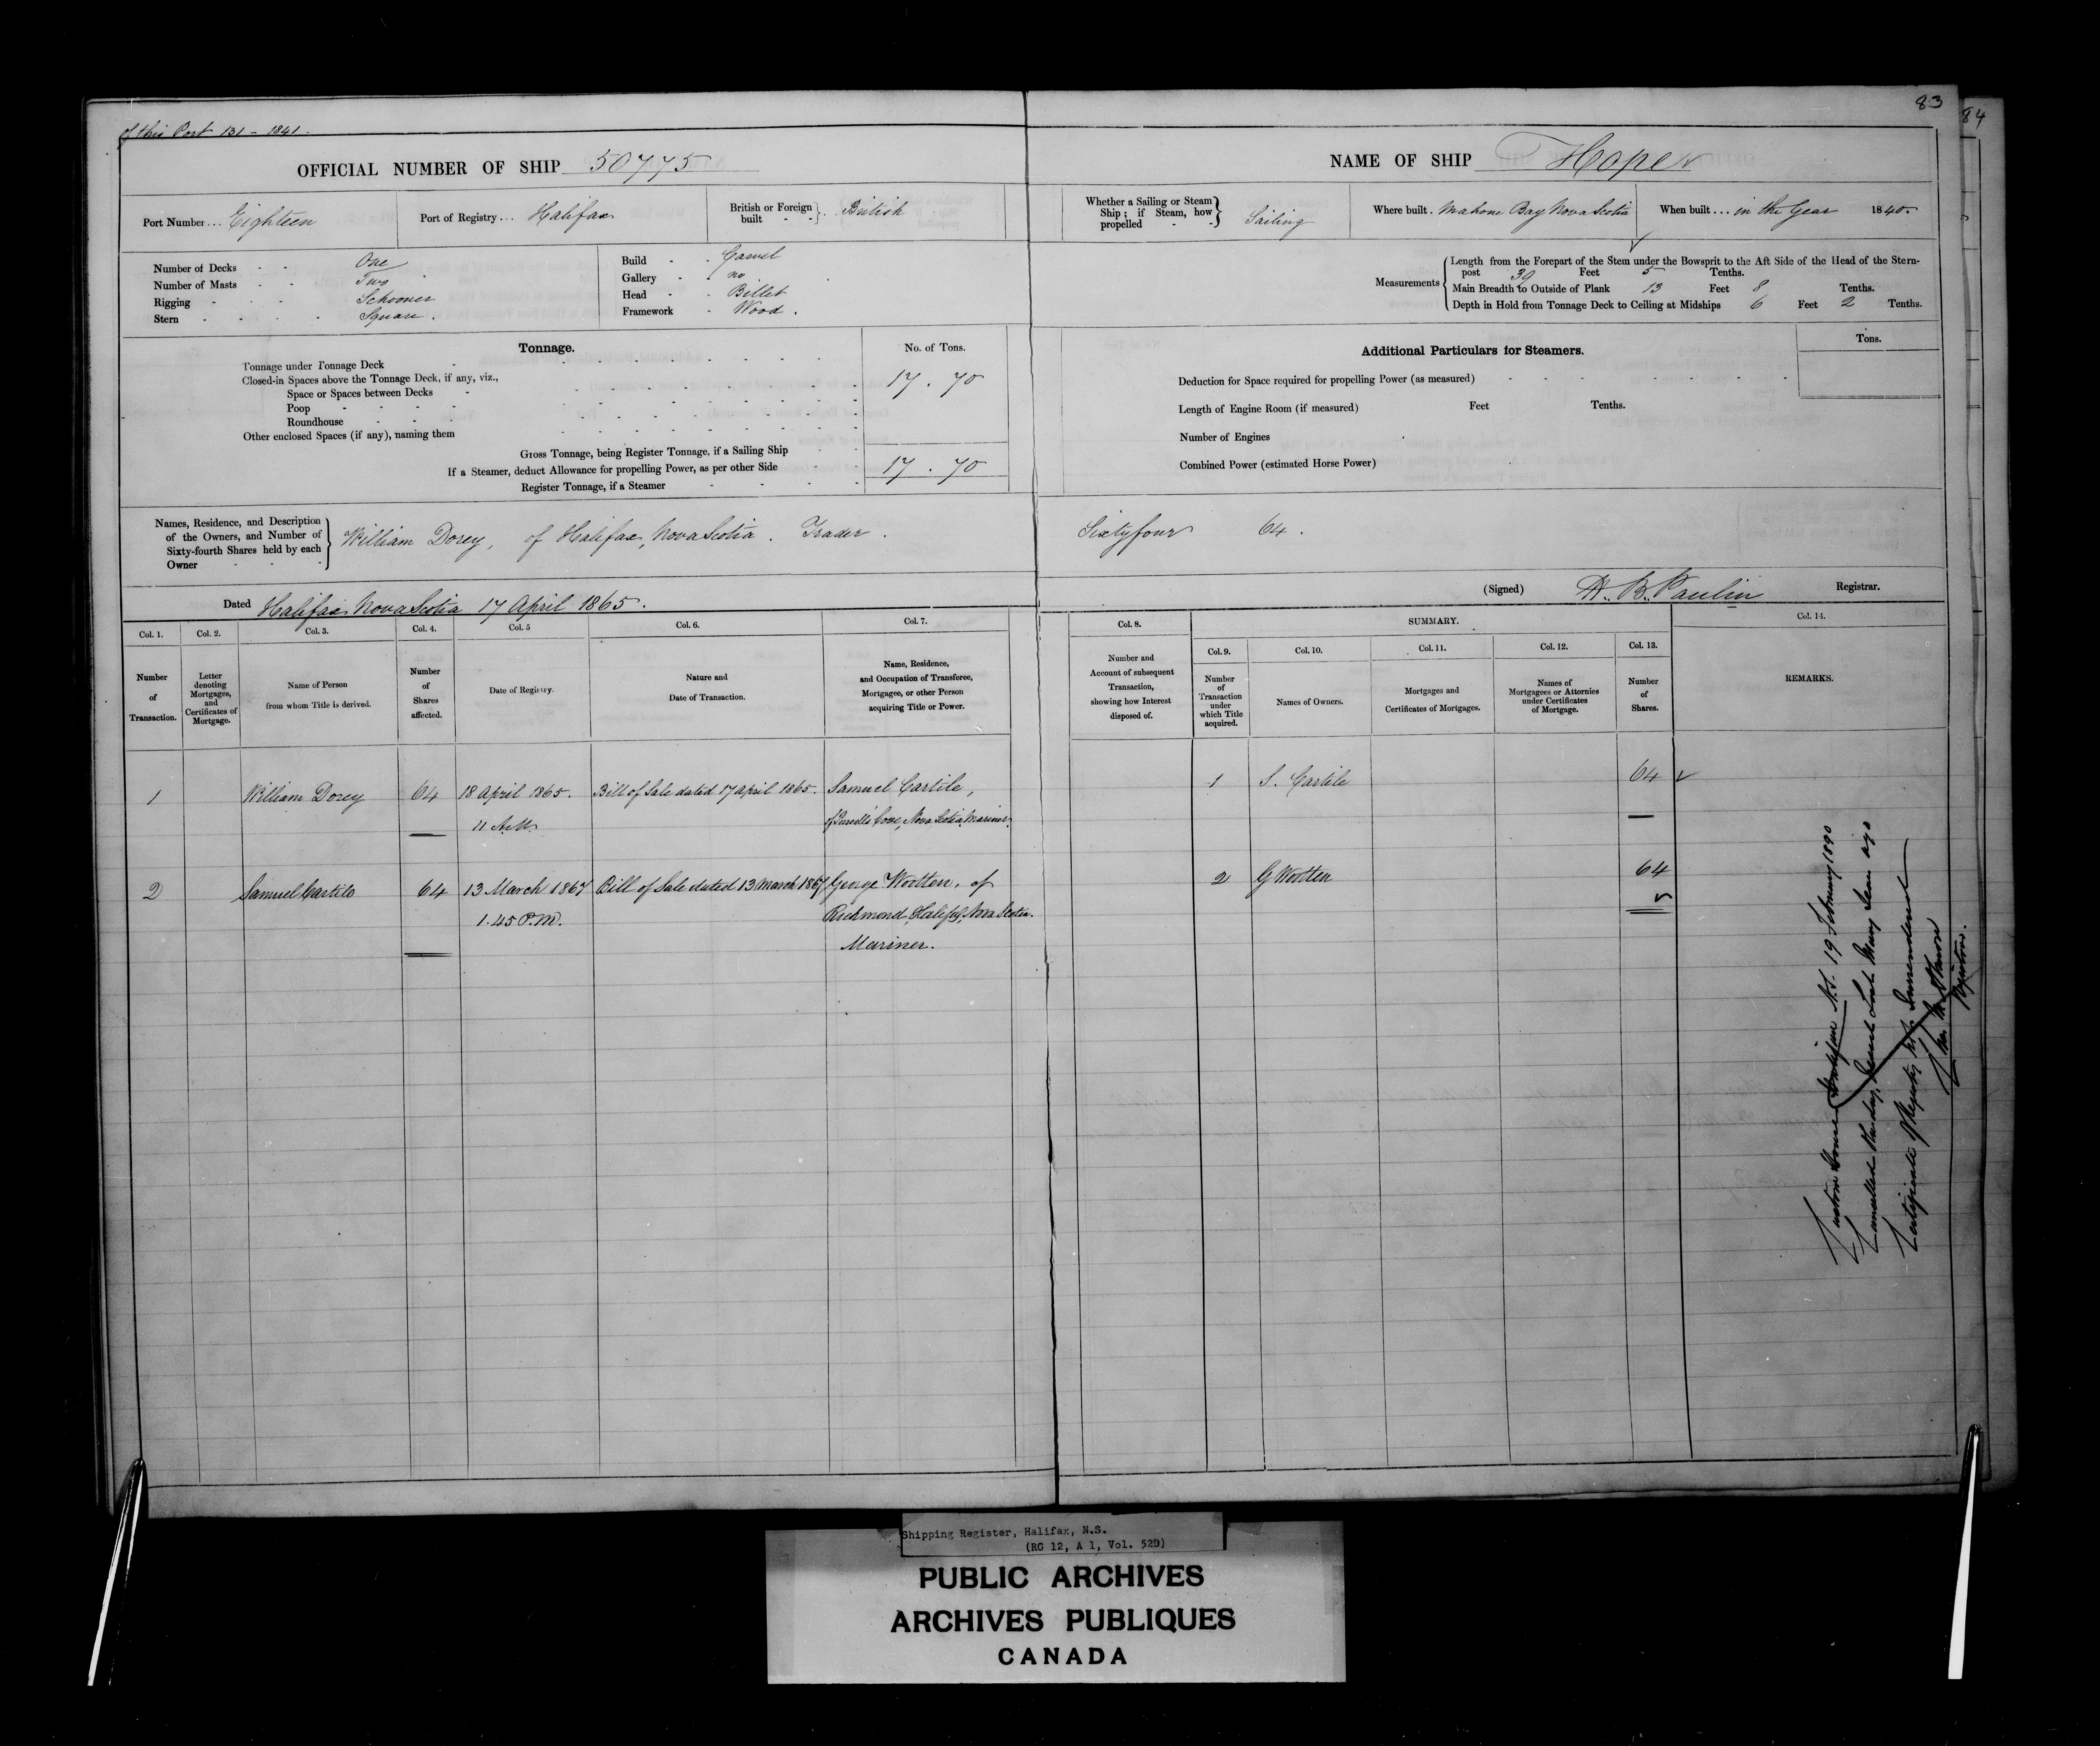 83
84
of this Port 131 - 1841.
OFFICIAL NUMBER OF SHIP 50775
NAME OF SHIP Hope
Port Number... Eighteen
Port of Registry... Halifax
British or Foreign built - - } . British
Whether a Sailing or Steam Ship; if Steam, how propelled - - } Sailing
Where built. Mahone Bay Nova Scotia
When built... in the Year 1840.
Number of Decks - - One
Number of Masts - - Two
Rigging - - - Schooner
Stern - - - - Square.
Build - - Carvel
Gallery - no
Head - - Billet
Framework - Wood.
Measurements
Length from the Forepart of the Stem under the Bowsprit to the Aft Side of the Head of the Stern-
post 39 Feet 5 Tenths.
Main Breadth to Outside of Plank 13 Feet 8 Tenths.
Depth in Hold from Tonnage Deck to Ceiling at Midships 6 Feet 2 Tenths.
Tonnage.
No. of Tons.
Tonnage under Tonnage Deck
Closed-in Spaces above the Tonnage Deck, if any, viz.,
17.70
Space or Spaces between Decks
Poop
Roundhouse
Other enclosed Spaces (if any), naming them
Gross Tonnage, being Register Tonnage, if a Sailing Ship
If a Steamer, deduct Allowance for propelling Power, as per other Side
17.70
Register Tonnage, if a Steamer
Additional Particulars for Steamers.
Tons.
Deduction for Space required for propelling Power (as measured)
Length of Engine Room (if measured) Feet Tenths.
Number of Engines
Combined Power (estimated Horse Power)
Names, Residence, and Description
of the Owners, and Number of
Sixty-fourth Shares held by each
Owner
William Dorey, of Halifax, Nova Scotia. Trader. Sixtyfour 64.
Dated Halifax Nova Scotia 17 April 1865.
(Signed) H. B. Paulin Registrar.
Col. 1.
Number of Transaction.
Col. 2.
Letter denoting Mortgages, and Certificates of Mortgage.
Col. 3.
Name of Person from whom Title is derived.
Col. 4.
Number of Shares affected.
Col. 5
Date of Registry.
Col. 6.
Nature and Date of Transaction.
Col. 7.
Name, Residence, and Occupation of Transferee, Mortgagee, or other Person acquiring Title or Power.
Col. 8.
Number and Account of subsequent Transaction, showing how Interest disposed of.
SUMMARY.
Col. 9.
Number of Transaction under which Title acquired.
Col. 10.
Names of Owners.
Col. 11.
Mortgages and Certificates of Mortgages.
Col. 12.
Names of Mortgagees or Attornies under Certificates of Mortgage.
Col. 13.
Number of Shares.
Col. 14.
REMARKS.
1 William Dorey 64 18 April 1865. Bill of Sale dated 17 April 1865. Samuel Cartile, 1 S. Cartile 64
11 A.M. of Purcell's Cove, Nova Scotia, Mariner.
2 Samuel Cartile 64 13 March 1867 Bill of Sale dated 13 March 1867 George Wootten, of 2 G Wootten 64
1.45 P.M. Richmond, Halifax, Nova Scotia.
Mariner.
Custom House Halifax N.S. 19 February 1890
Cancelled this day, Vessel Lost Many Years ago
Certificate of Registry not Surrendered
Registrar.
Shipping Register, Halifax, N.S.
(RG 12, A 1, Vol. 52D)
PUBLIC ARCHIVES
ARCHIVES PUBLIQUES
CANADA